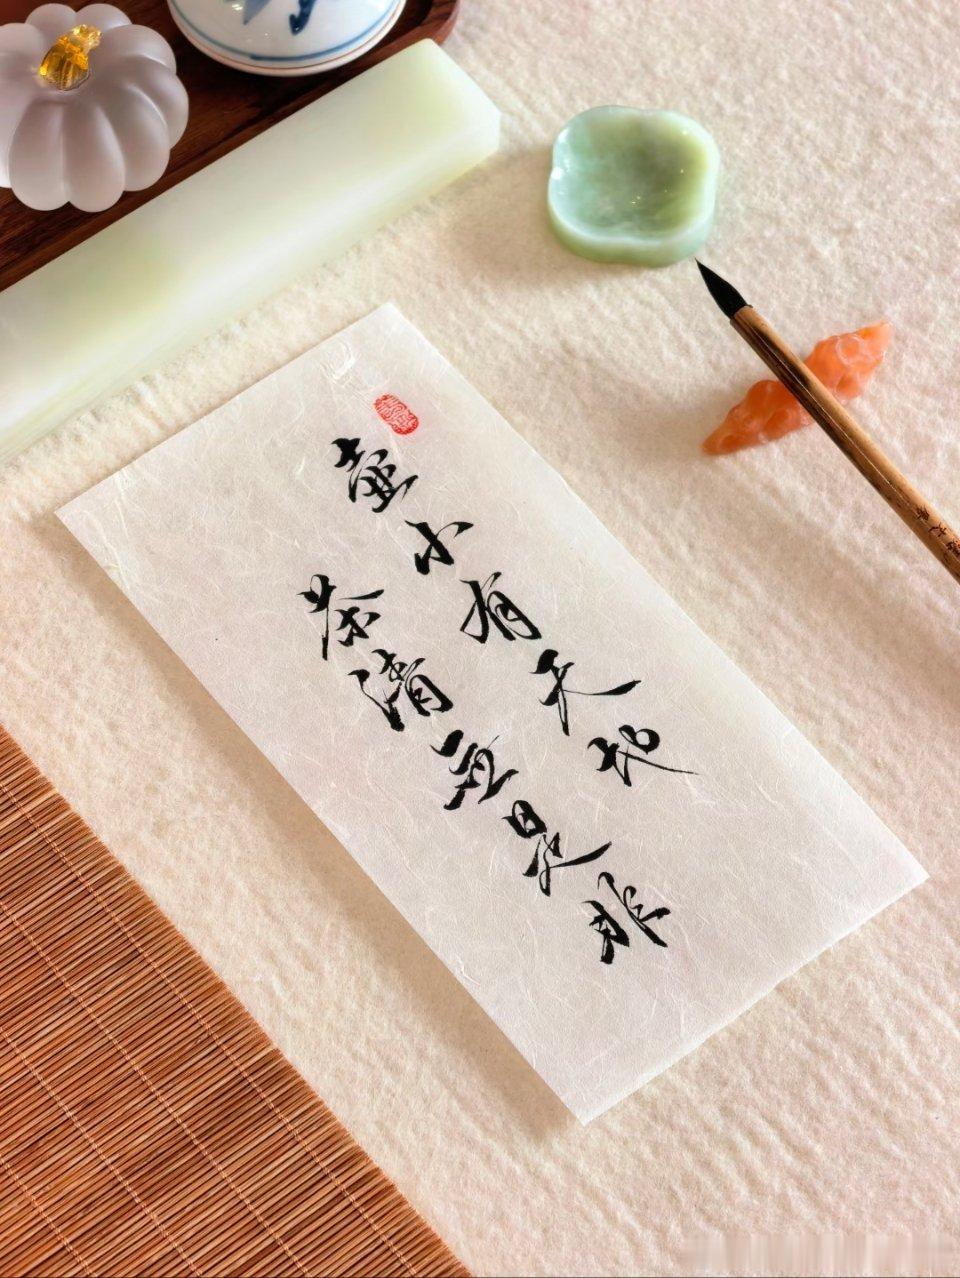 壶小有天地
茶清无是非